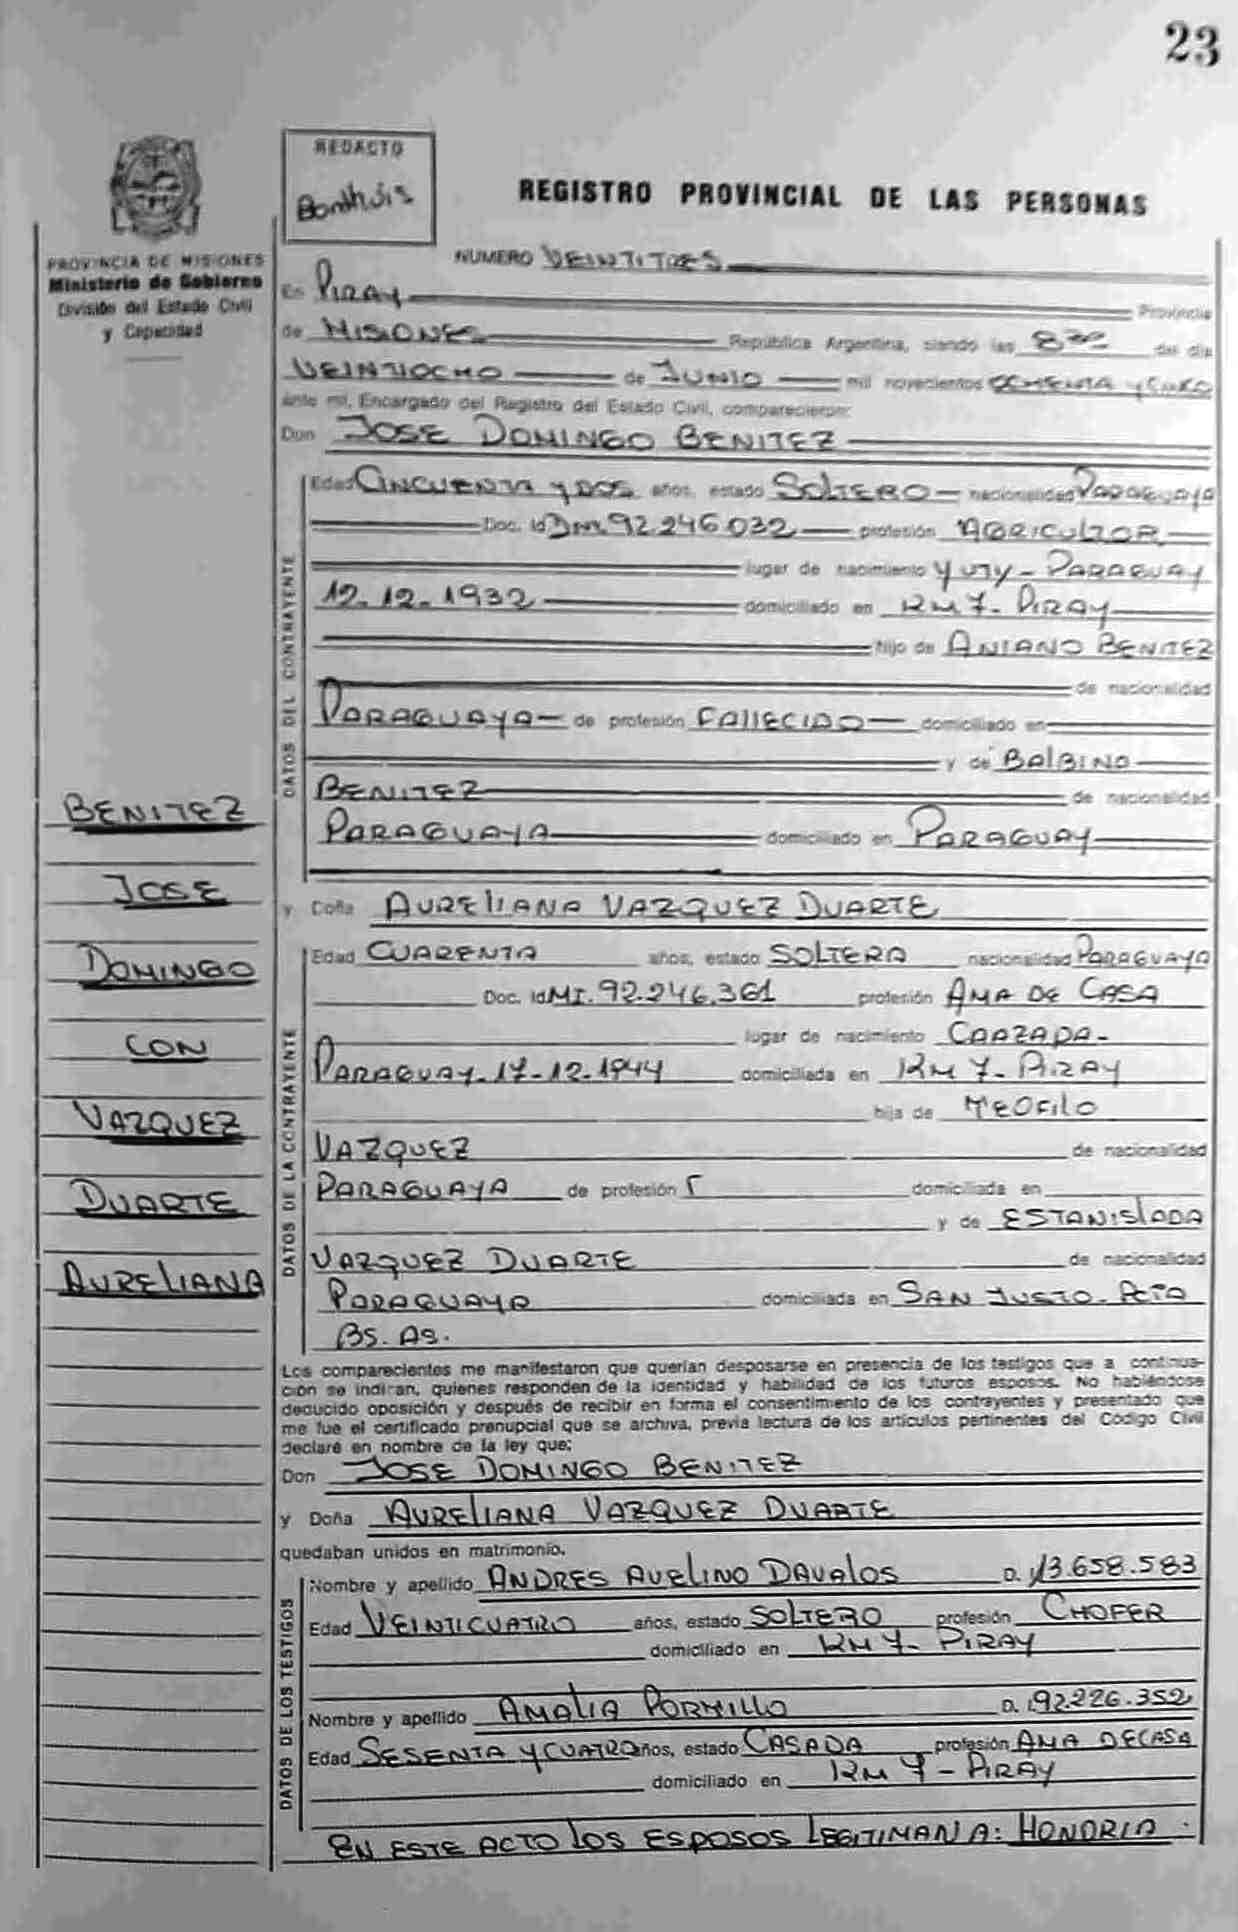 23
REDACTO
Bonthuis
REGISTRO PROVINCIAL DE LAS PERSONAS
PROVINCIA DE MISIONES
Ministerio de Gobierno
División del Estado Civil
y Capacidad
NUMERO VEINTITRES
En PIRAY Provincia
de MISIONES República Argentina, siendo las 8 del día
VEINTIOCHO de JUNIO mil novecientos OCHENTA Y CINCO
ante mí, Encargado del Registro del Estado Civil, comparecieron:
Don JOSE DOMINGO BENITEZ
DATOS DEL CONTRAYENTE
Edad CINCUENTA Y DOS años, estado SOLTERO nacionalidad PARAGUAYA
Doc. Id DNI 92.246.032 profesión AGRICULTOR
lugar de nacimiento YUTY - PARAGUAY
12.12.1932 domiciliado en KM 7 - PIRAY
hijo de ANIANO BENITEZ
de nacionalidad
PARAGUAYA de profesión FALLECIDO domiciliado en
y de BALBINO
BENITEZ de nacionalidad
PARAGUAYA domiciliado en PARAGUAY
y Doña AURELIANA VAZQUEZ DUARTE
DATOS DE LA CONTRAYENTE
Edad CUARENTA años, estado SOLTERA nacionalidad PARAGUAYA
Doc. Id MI. 92.246.361 profesión AMA DE CASA
lugar de nacimiento CAAZAPA -
PARAGUAY - 17-12-1944 domiciliada en KM 7 - PIRAY
hija de TEOFILO
VAZQUEZ de nacionalidad
PARAGUAYA de profesión domiciliada en
y de ESTANISLADA
VAZQUEZ DUARTE de nacionalidad
PARAGUAYA domiciliada en SAN JUSTO - PCIA
BS. AS.
BENITEZ
JOSE
DOMINGO
CON
VAZQUEZ
DUARTE
AURELIANA
Los comparecientes me manifestaron que querían desposarse en presencia de los testigos que a continua-
ción se indican, quienes responden de la identidad y habilidad de los futuros esposos. No habiéndose
deducido oposición y después de recibir en forma el consentimiento de los contrayentes y presentado que
me fue el certificado prenupcial que se archiva, previa lectura de los artículos pertinentes del Código Civil
declaré en nombre de la ley que:
Don JOSE DOMINGO BENITEZ
y Doña AURELIANA VAZQUEZ DUARTE
quedaban unidos en matrimonio.
DATOS DE LOS TESTIGOS
Nombre y apellido ANDRES AVELINO DAVALOS D. 13.658.583
Edad VEINTICUATRO años, estado SOLTERO profesión CHOFER
domiciliado en KM 7 - PIRAY
Nombre y apellido AMALIA PORTILLO D. 92.226.352
Edad SESENTA Y CUATRO años, estado CASADA profesión AMA DE CASA
domiciliado en KM 7 - PIRAY
EN ESTE ACTO LOS ESPOSOS LEGITIMAN A: HONORIA